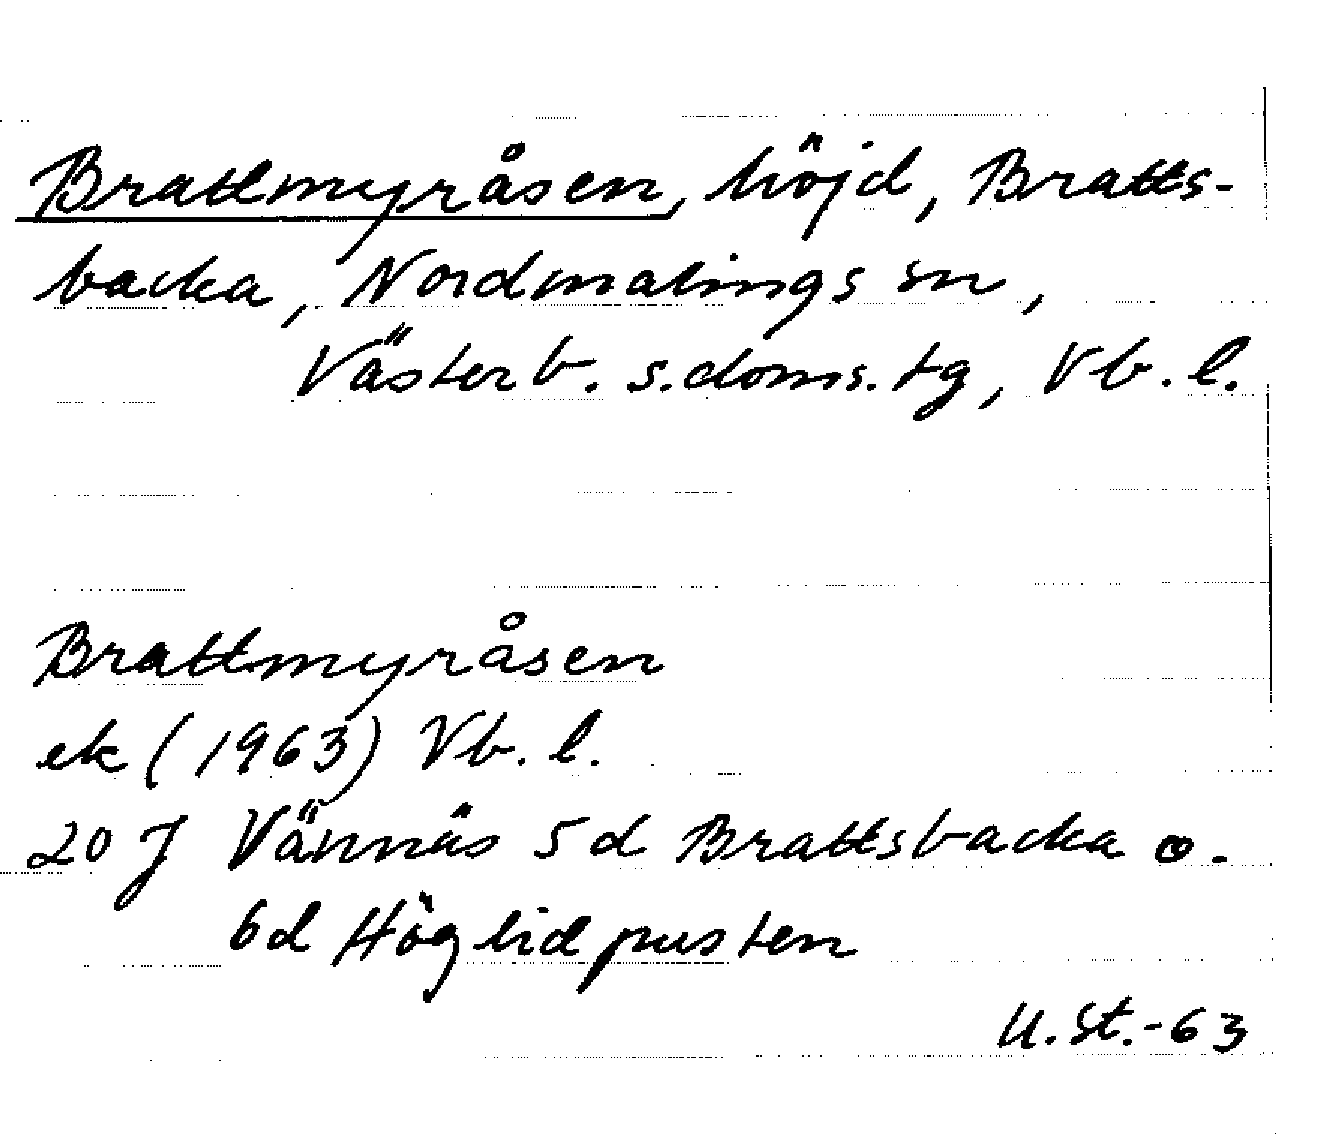 Brattmyråsen, höjd, Bratts-
backa, Nordmalings sn,
Västerb. s.doms.tg, Vb. l.
Brattmyråsen
ek (1963) Vb. l.
20 J Vännäs 5 d Brattsbacka o.
6d Höglidpusten
U.St.-63